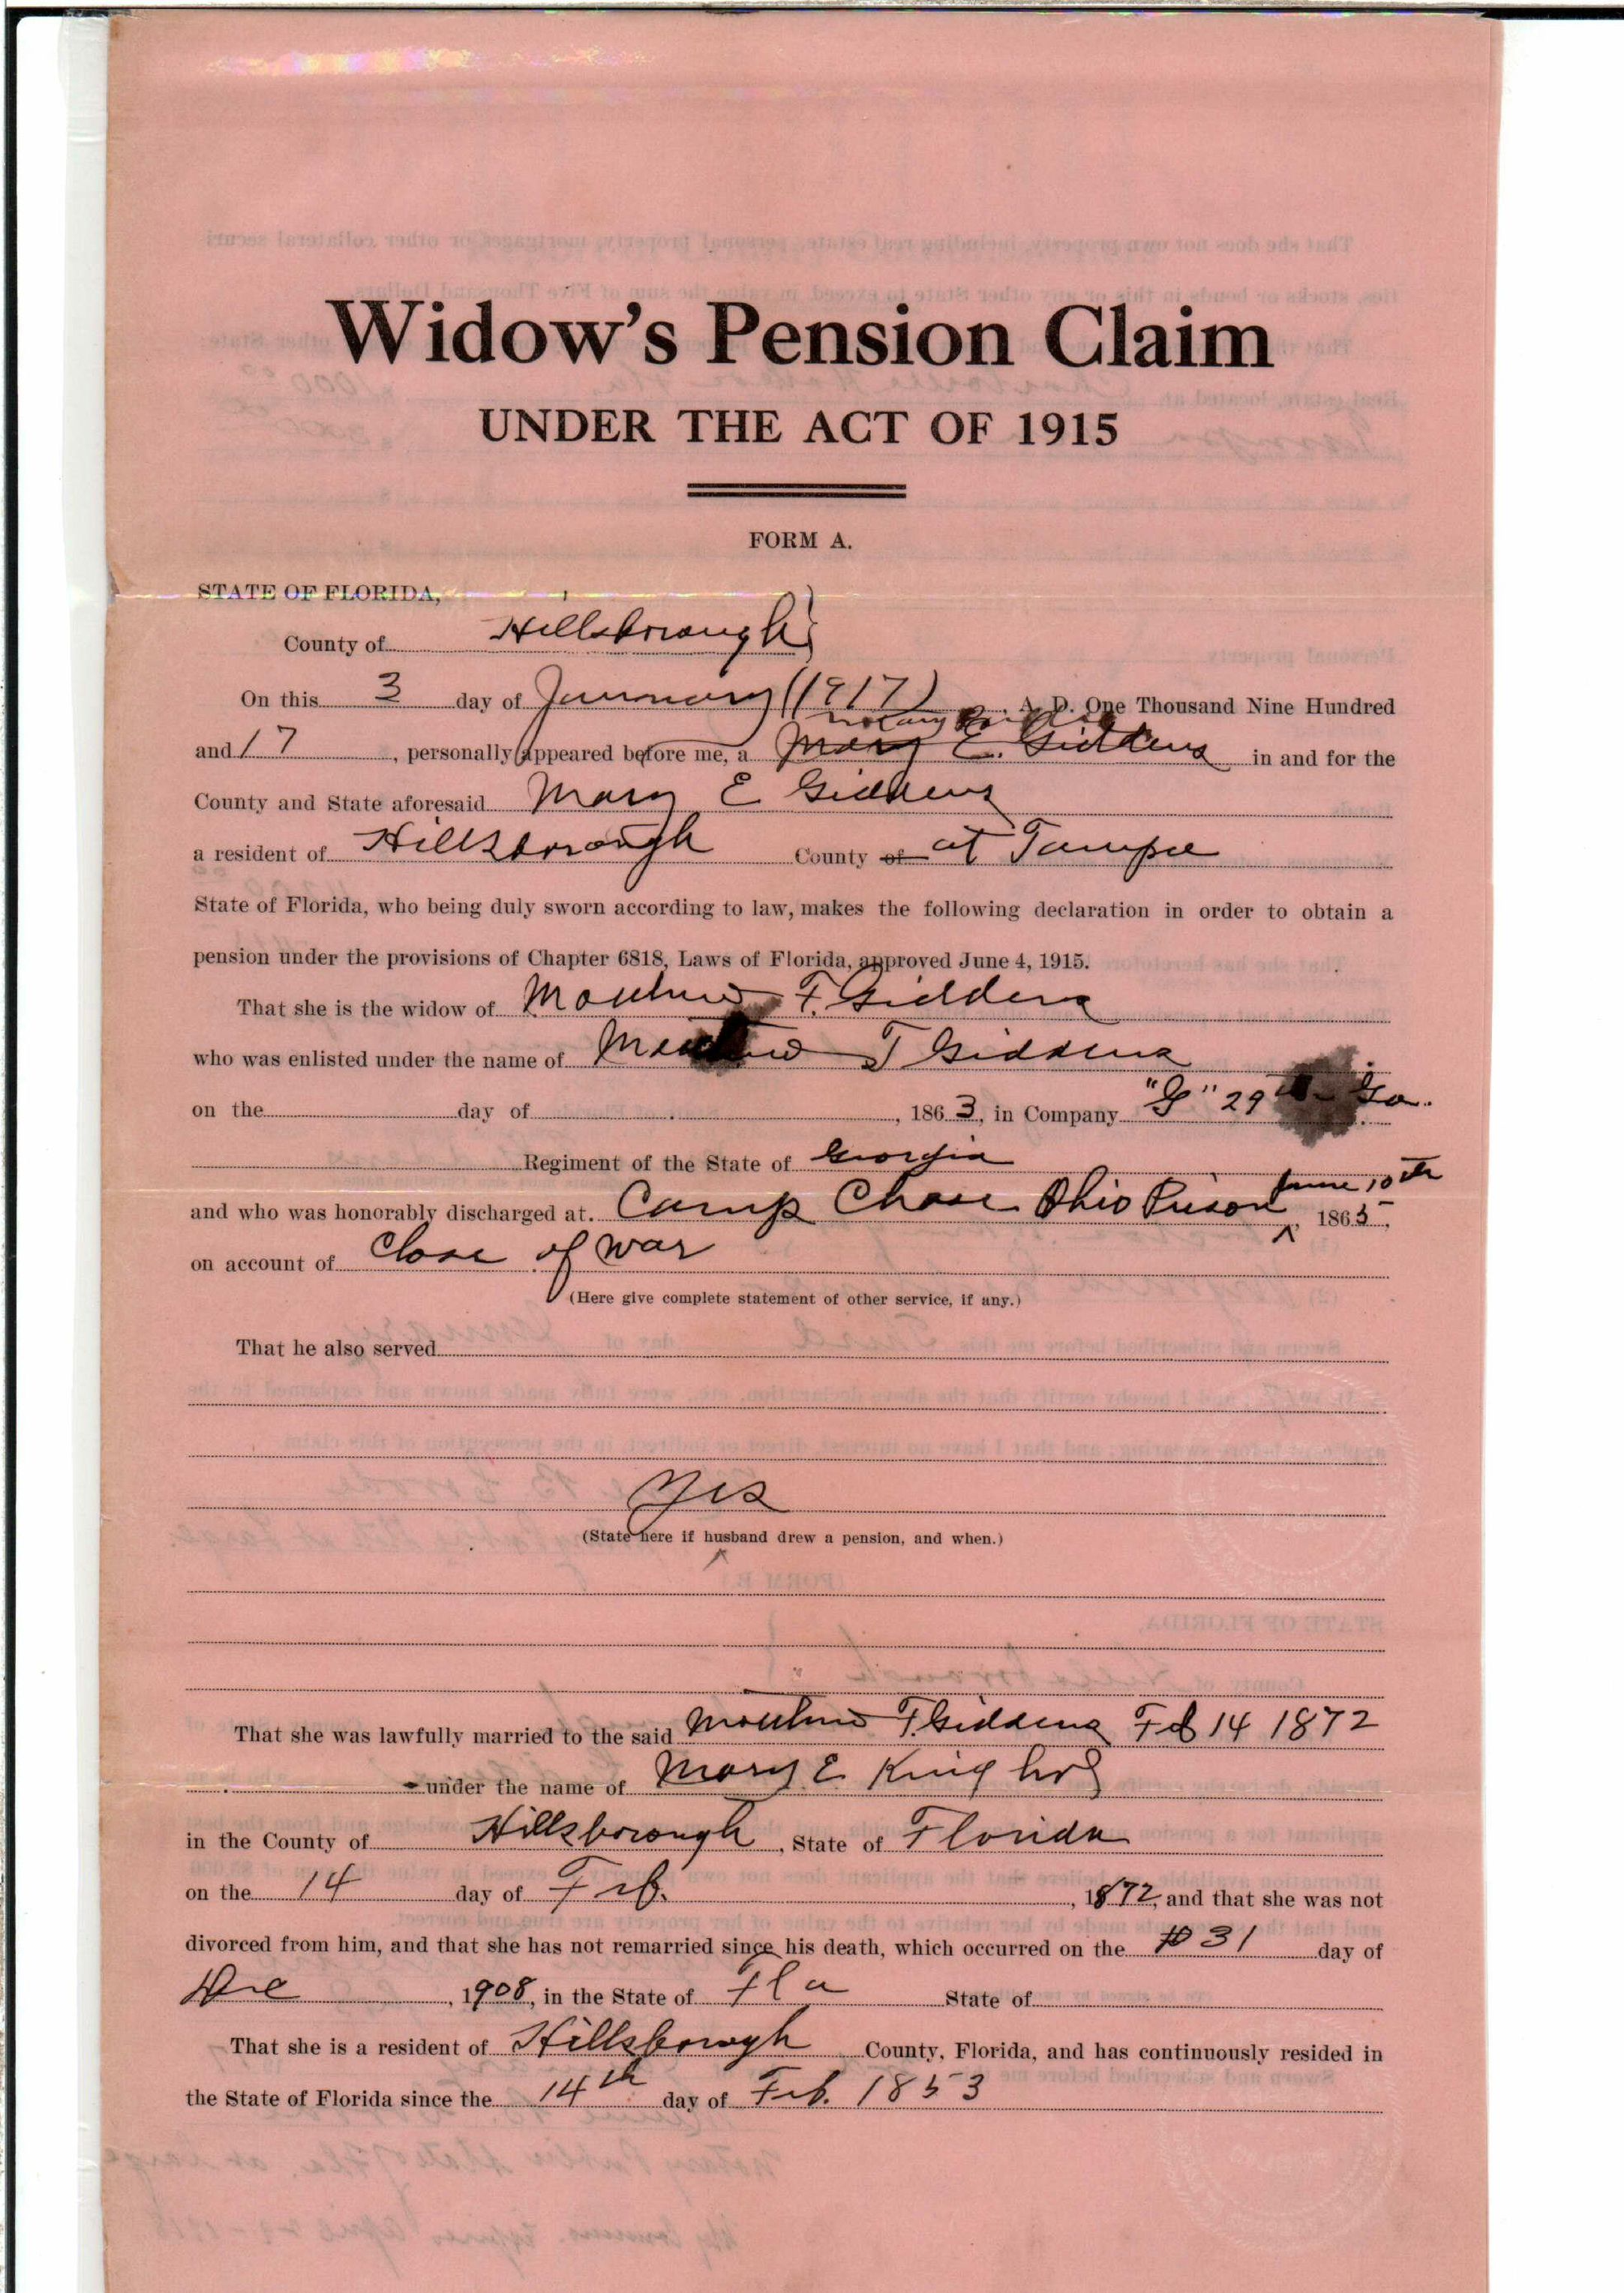 Widow's Pension Claim
UNDER THE ACT OF 1915
FORM A.
STATE OF FLORIDA,
County of Hillsborough
On this 3 day of January (1917) A. D. One Thousand Nine Hundred
notary Public
and 17, personally appeared before me, a Mary E. Giddens in and for the
County and State aforesaid Mary E Giddens
a resident of Hillsborough County of at Tampa
State of Florida, who being duly sworn according to law, makes the following declaration in order to obtain a
pension under the provisions of Chapter 6818, Laws of Florida, approved June 4, 1915.
That she is the widow of F. Giddens
who was enlisted under the name of Giddens
on the day of , 1863, in Company "G" 29th Ga.
Regiment of the State of Georgia
June 10th
and who was honorably discharged at Camp Chase Ohio Prison ^, 1865,
on account of Close of war
(Here give complete statement of other service, if any.)
That he also served
Yes
(State here if husband drew a pension, and when.)
That she was lawfully married to the said F. Giddens Feb 14 1872
under the name of Mary E
in the County of Hillsborough, State of Florida
on the 14 day of Feb. , 1872, and that she was not
divorced from him, and that she has not remarried since his death, which occurred on the 31 day of
Dec , 1908, in the State of Fla State of
That she is a resident of Hillsborough County, Florida, and has continuously resided in
the State of Florida since the 14th day of Feb. 1853